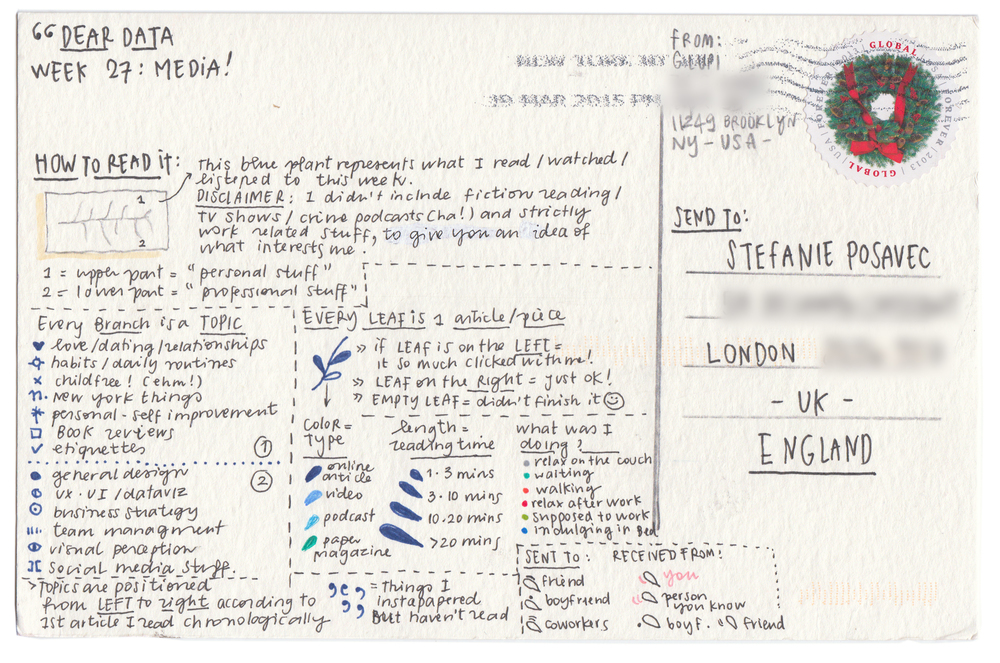 “DEAR DATA
WEEK 27: MEDIA!
NEW YORK NY
19 MAR 2015 PM
FROM:
11249 BROOKLYN
NY - USA -
GLOBAL
FOREVER 2013
GLOBAL
USA FOREVER
HOW TO READ IT:
This blue plant represents what I read/watched/
listened to this week.
DISCLAIMER: I didn't include fiction reading/
TV shows/crime podcasts (ha!) and strictly
work related stuff, to give you an idea of
what interests me.
1
2
1 = upper part = "personal stuff"
2 = lower part = "professional stuff"
Every Branch is a TOPIC
love/dating/relationships
habits/daily routines
childfree! (ehm!)
new york things
personal-self improvement
BOOK reviews
etiquettes
1
general design
2
UX-UI/dataviz
business strategy
team managment
visual perception
social media stuff.
> Topics are positioned
from LEFT to right according to
1st article I read chronologically
EVERY LEAF is 1 article/piece
» if LEAF is on the LEFT =
it so much clicked with me!
» LEAF on the Right = just ok!
» EMPTY LEAF = didn't finish it ☺
COLOR =
TYPE
online
article
video
podcast
paper
magazine
length =
reading time
1-3 mins
3-10 mins
10-20 mins
>20 mins
what was I
doing?
relax on the couch
waiting
walking
relax after work
supposed to work
indulging in Bed
= Things I
instapapered
But haven't read
SENT TO:
friend
boyfriend
coworkers
RECEIVED FROM:
you
person
you know
boyf.
friend
SEND TO:
STEFANIE POSAVEC
LONDON
- UK -
ENGLAND